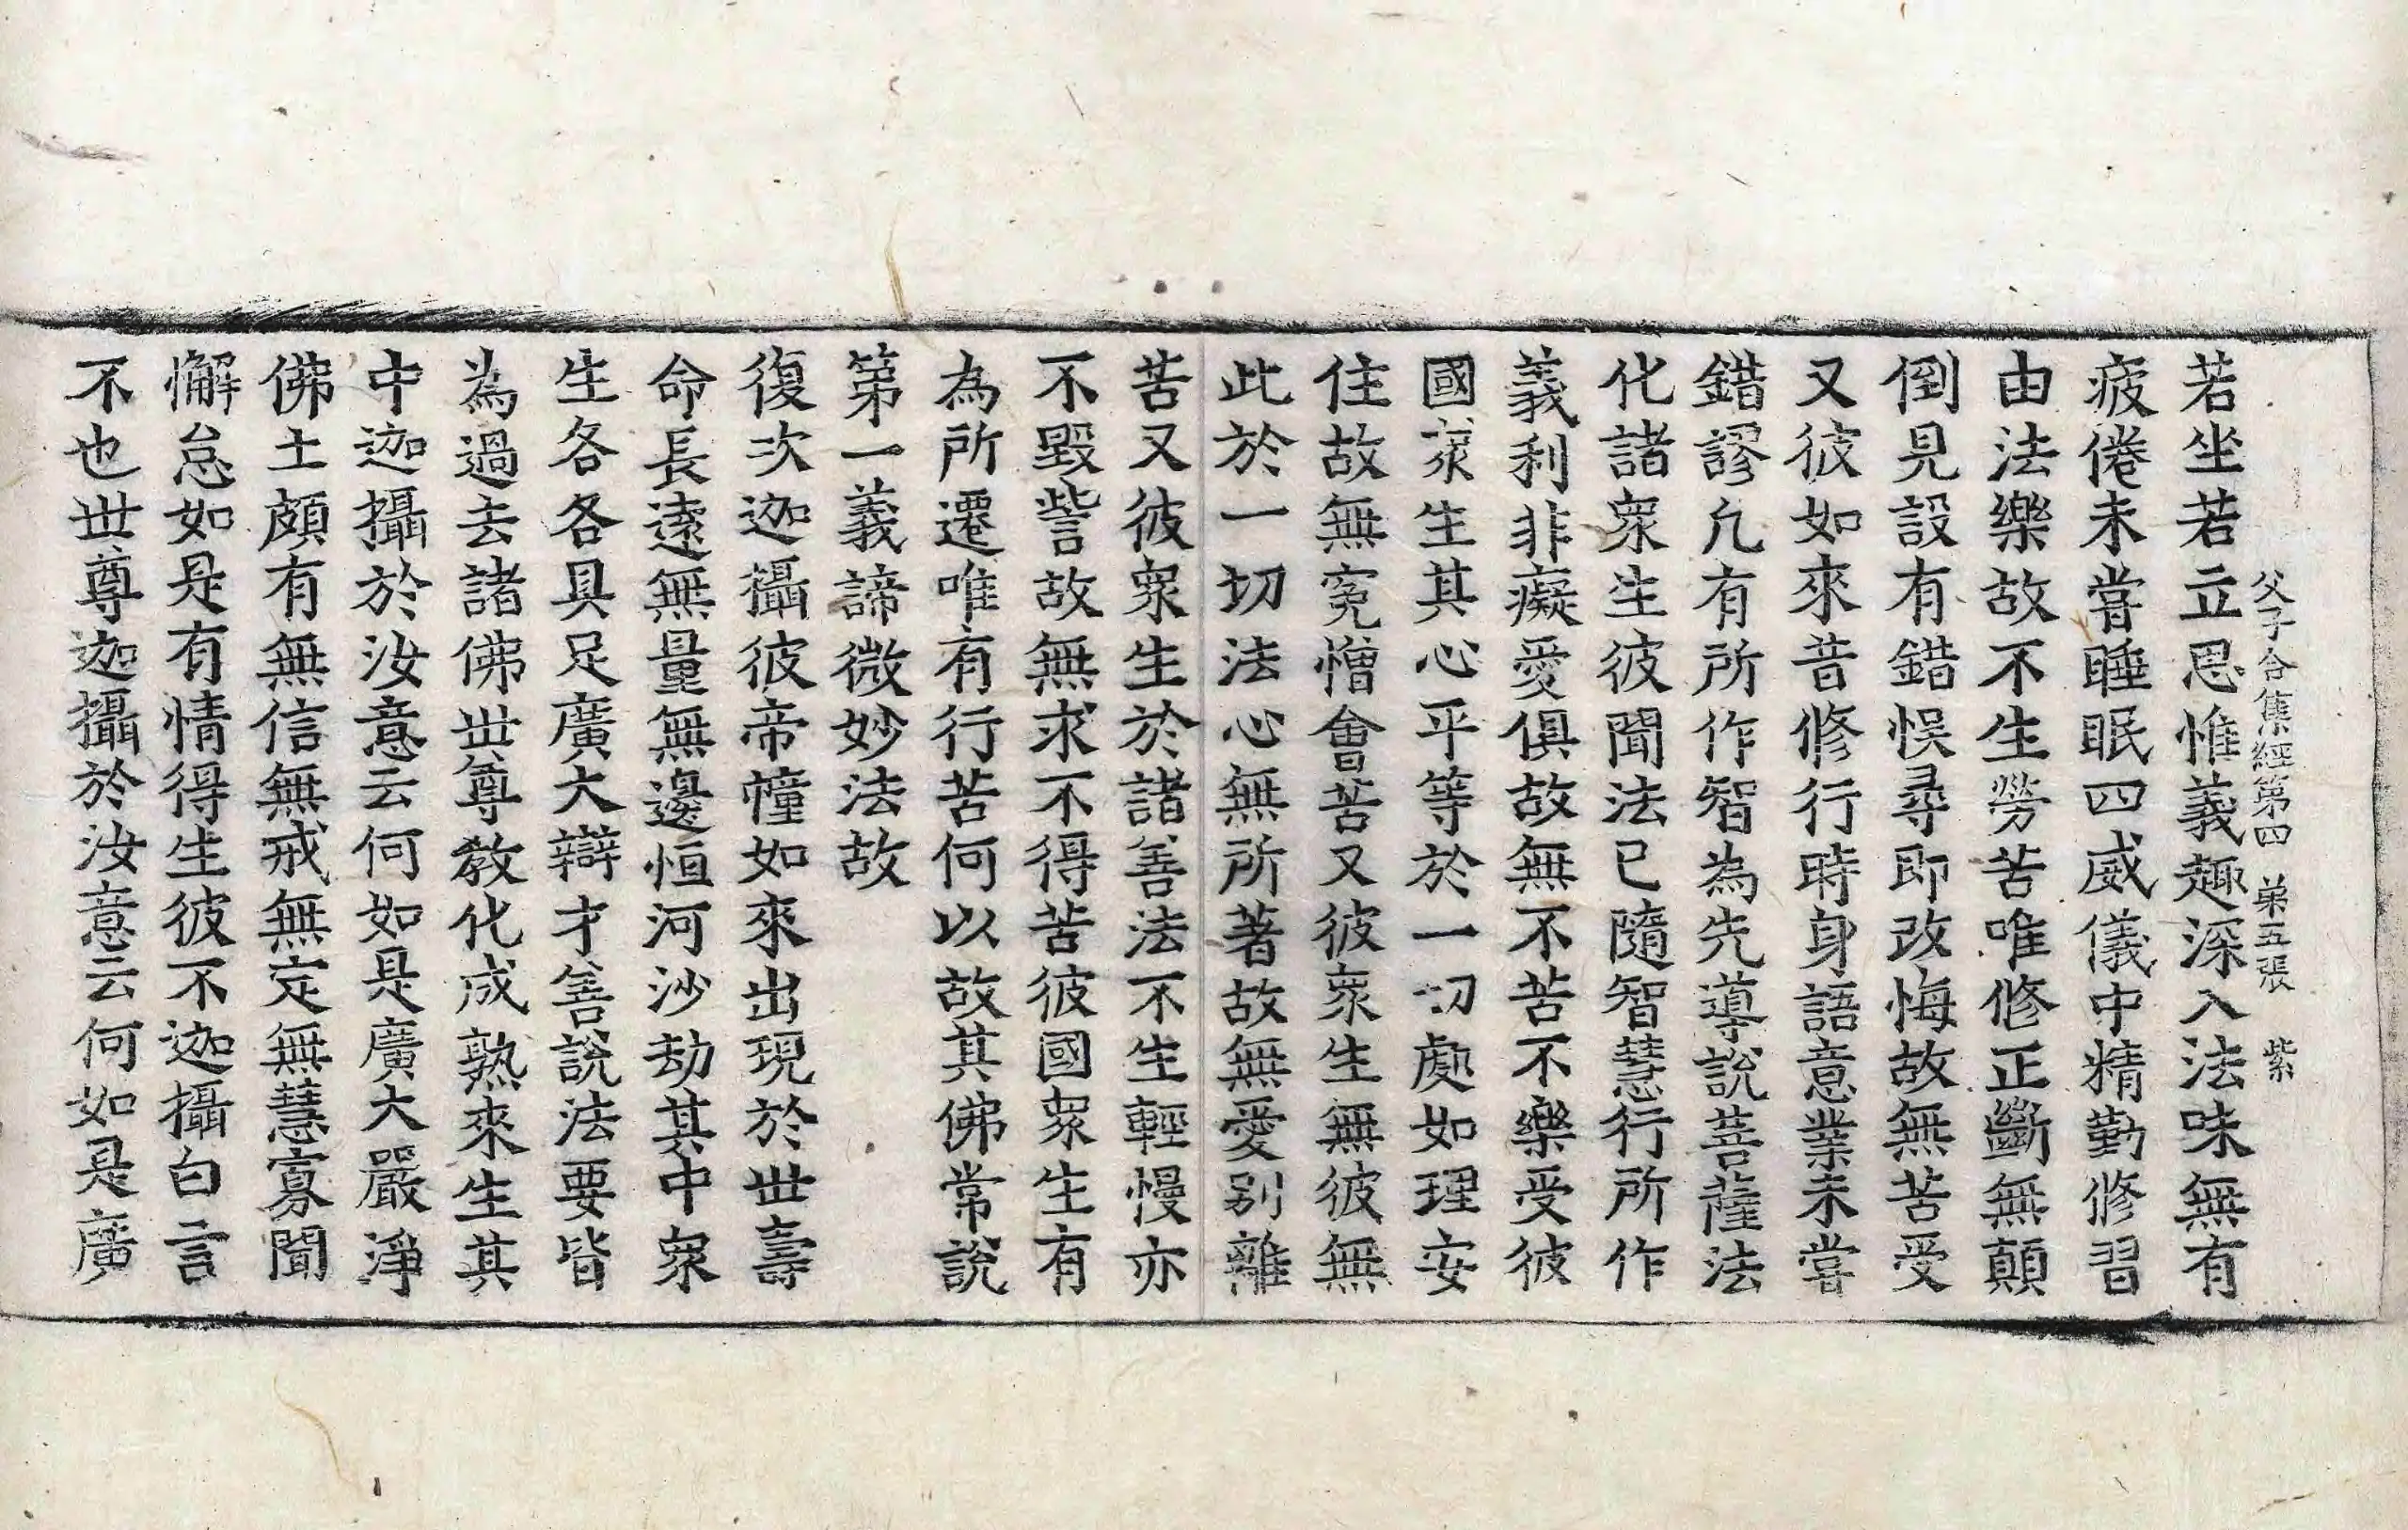 父子合集經第四 弟五張 紫
若坐若立思惟義趣深入法味無有
疲倦未嘗睡眠四威儀中精勤修習
由法樂故不生勞苦唯修正斷無顛
倒見設有錯悞尋即改悔故無苦受
又彼如來昔修行時身語意業未嘗
錯謬凢有所作智為先導說菩薩法
化諸衆生彼聞法已隨智慧行所作
義利非癡愛俱故無不苦不樂受彼
國衆生其心平等於一切處如理安
住故無寃憎會苦又彼衆生無彼無
此於一切法心無所著故無愛别離
苦又彼衆生於諸善法不生輕慢亦
不毀訾故無求不得苦彼國衆生有
為所遷唯有行苦何以故其佛常說
第一義諦微妙法故
復次迦攝彼帝幢如來出現於世壽
命長遠無量無邊恒河沙劫其中衆
生各各具足廣大辯才善說法要皆
為過去諸佛世尊教化成熟來生其
中迦攝於汝意云何如是廣大嚴淨
佛土頗有無信無戒無定無慧寡聞
懈怠如是有情得生彼不迦攝白言
不也世尊迦攝於汝意云何如是廣